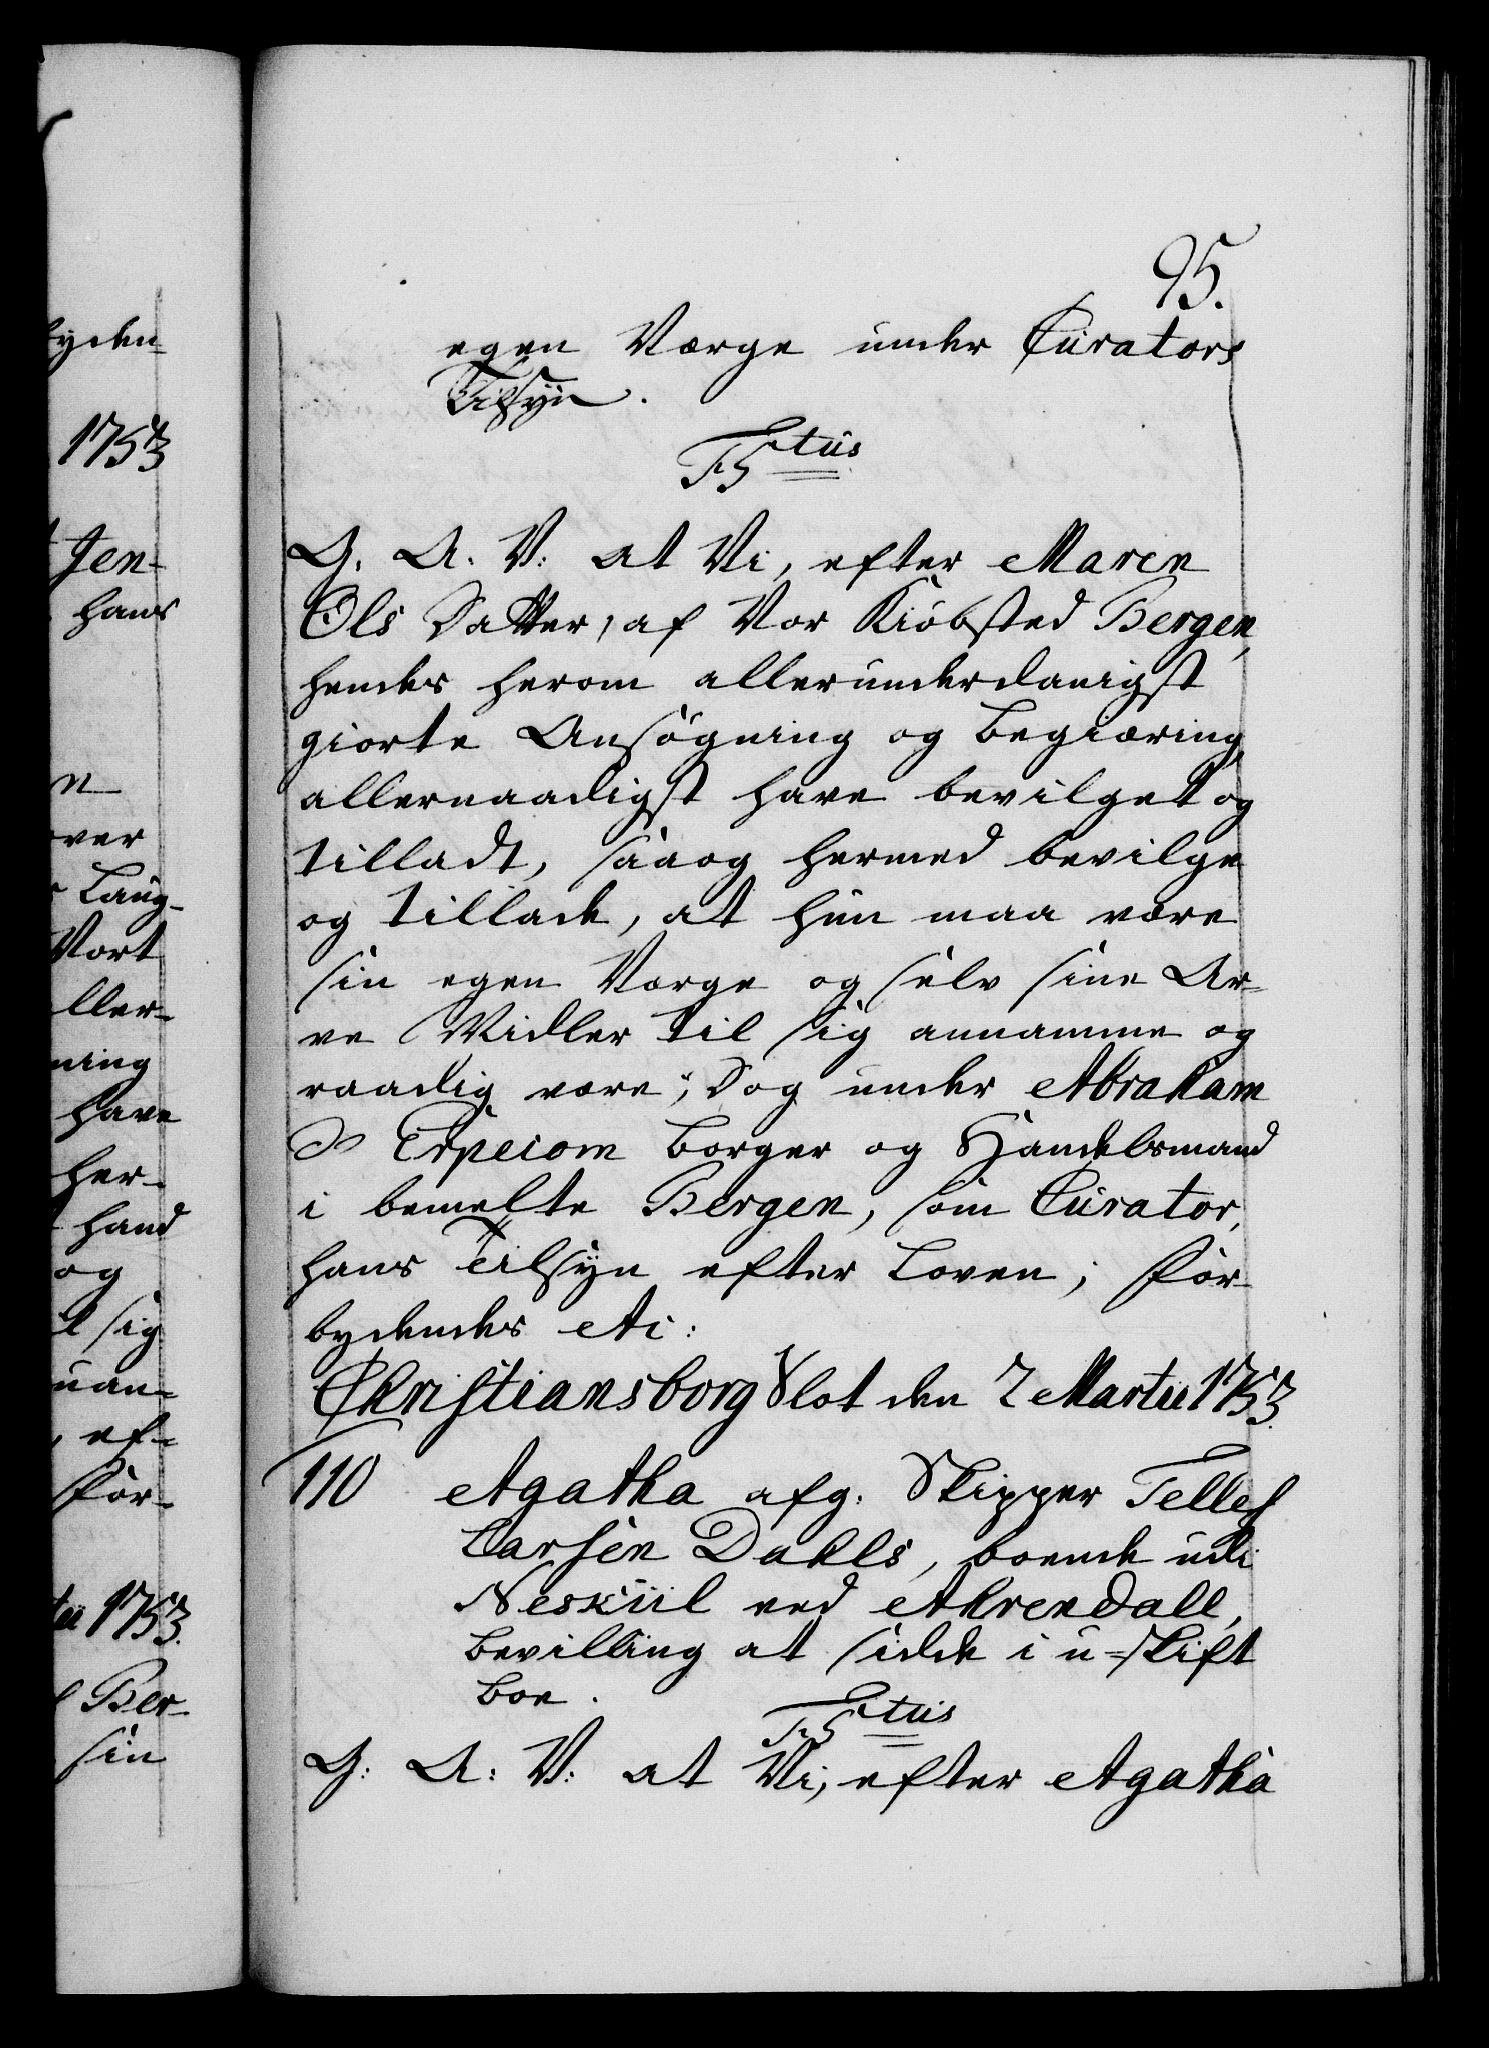 95.
egen Værge under Curators
Tilsyn.
F5tus
G. A. V: at Vi, efter Maren
Ols Datter, af Vor Kiöbsted Bergen,
hendes herom allerunderdanigst
giorte Ansögning og begiæring,
allernaadigst have bevilget og
tilladt, saa og hermed bevilge
og tillade, at hun maa være
sin egen Værge og selv sine Ar-
ve Midler til sig annamme og
raadig være; Dog under Abraham
borger og Handelsmand
i bemelte Bergen, som Curator,
hans Tilsyn efter Loven; For-
bydendes etc:
Christiansborg Slot den 2 Martii 1753.
110 Agatha afg: Skipper Tellef
Larsen Dahls, boende udi
Neskiil ved Ahrendall,
bevilling at sidde i u-skift
boe.
F5tus
G: A: V: at Vi, efter Agatha
yden-
1753
Jen-
hans
n
over
Laug-
Vort
ller-
ning
have
her-
hand
og
l sig
uan-
, ef-
For-
tii 1753.
Ber-
sin